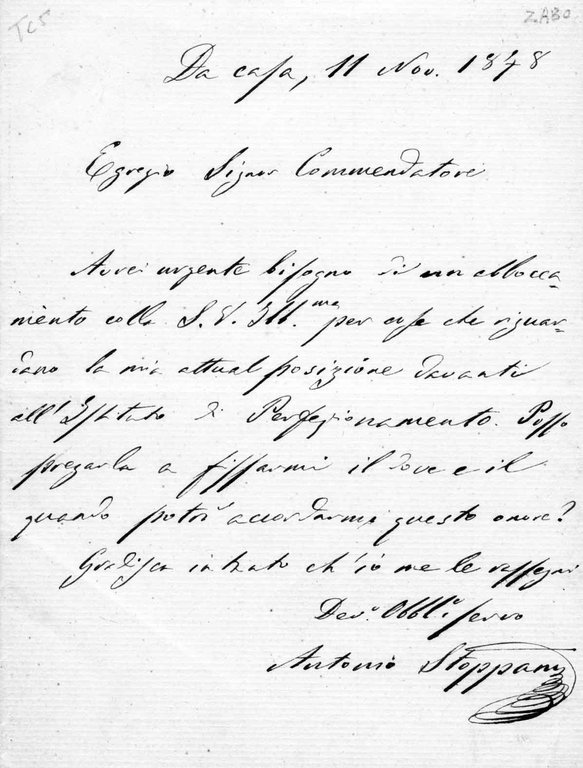 Tc5
Z.ABO
Da casa, 11 Nov. 1878
Egregio Signor Commendatore
Avrei urgente bisogno di un abbocca=
mento colla S. V. Ill.ma per cose che riguar=
dano la mia attual posizione davanti
all'Istituto di Perfezionamento. Posso
pregarla a fissarmi il dove e il
quando potrà accordarmi questo onore?
Gradisca intanto ch'io me le rassegni
Dev.o Obbl.o servo
Antonio Stoppani